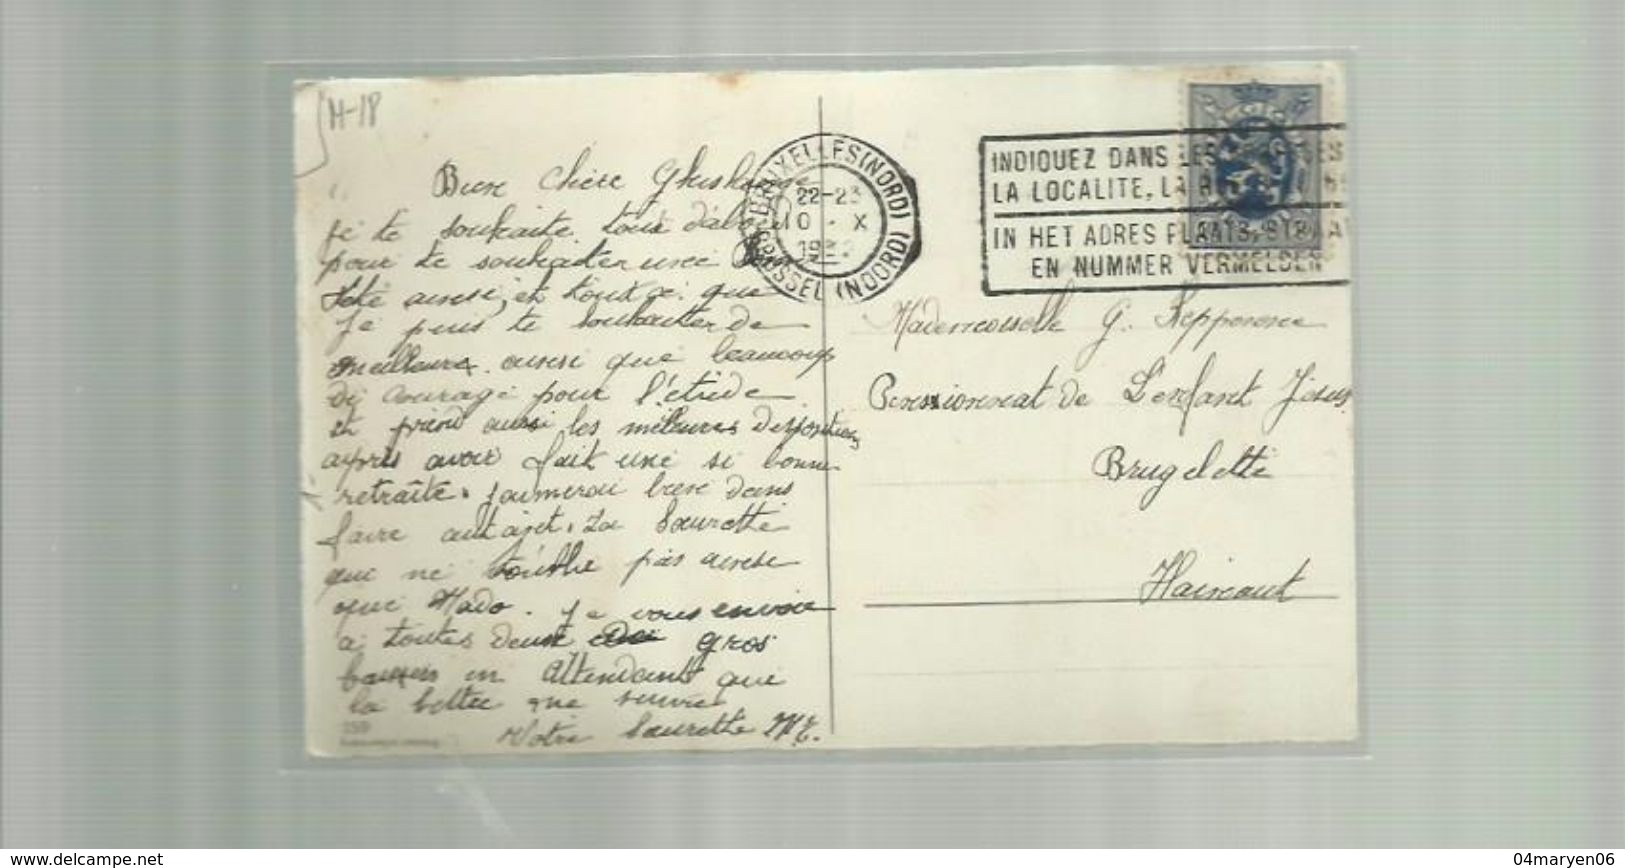 M-18
Bien chère Ghislaine
je te souhaite tout d'abord
pour te souhaiter une bonne
fête ainsi, et tout ce que
je puis te souhaiter de
meilleurs ainsi que beaucoup
de courage pour l'étude
et prend aussi les meilleures dispositions
après avoir fait une si bonne
retraite. J'aimerai bien dans
faire autajet. La Sœurette
qui ne pas ainsi
que Mado. Je vous envoie
à toutes deux de gros
baisers en attendant que
la lettre me suive
Votre Sœurette
159
BRUXELLES (NORD)
22-23
10 - X
BRUSSEL (NOORD)
INDIQUEZ DANS LES
LA LOCALITE, LA
IN HET ADRES PLAATS, STRAAT
EN NUMMER VERMELDEN
Mademoiselle G.
Pensionnat de L'enfant Jésus
Brugelette
Hainaut
https://www.delcampe.net
04maryen06